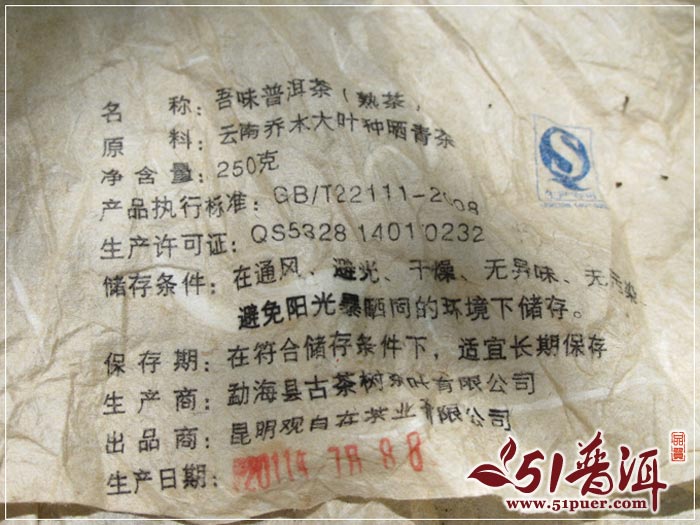 名 称：吾味普洱茶（熟茶）
原 料：云南乔木大叶种晒青茶
净含量：250克
产品执行标准：GB/T22111-2008
生产许可证：QS5328 1401 0232
储存条件：在通风、避光、干燥、无异味、无污染
避免阳光暴晒同的环境下储存。
保存期：在符合储存条件下，适宜长期保存
生产商：勐海县古茶树茶叶有限公司
出品商：昆明观自在茶业有限公司
生产日期：2011年 7月 8 8
51普洱
www.51puer.com